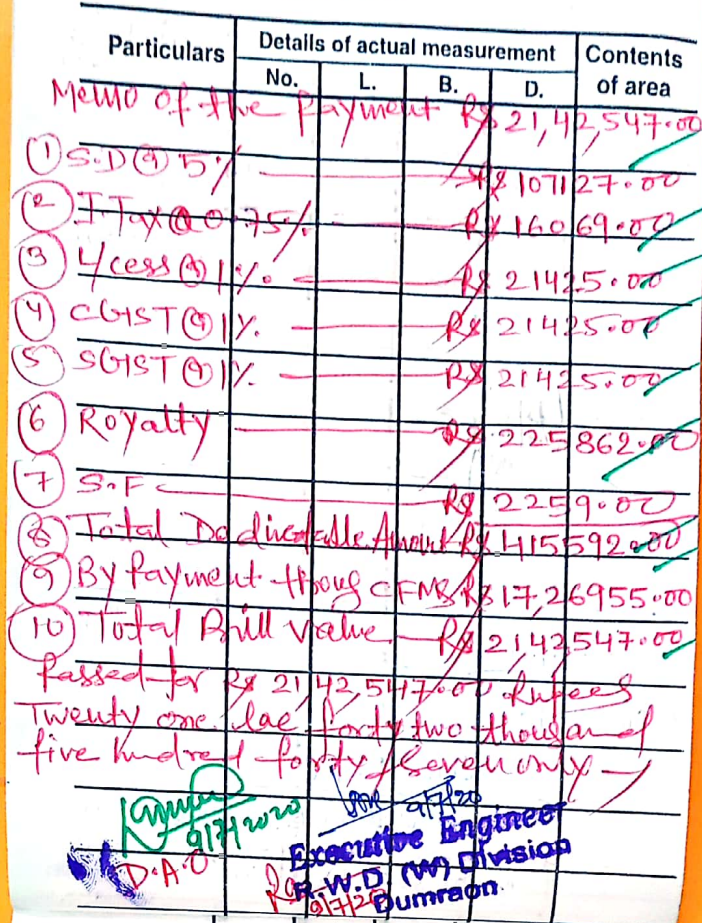 Particulars Details of actual measurement Contents of area
No. L. B. D.
Memo of the Payment Rs 21,42,547.00
1 S.D @ 5% Rs 107127.00
2 I.Tax @ 0.75% Rs 16069.00
3 L/cess @ 1%. Rs 21425.00
4 CGST @ 1%. Rs 21425.00
5 SGST @ 1%. Rs 21425.00
6 Royalty Rs 225862.00
7 S.F Rs 2259.00
8 Total Amount Rs 415592.00
9 By Payment throug CFMS Rs 17,26955.00
10 Total Bill value Rs 21,42,547.00
Passed for Rs 21,42,547.00 Rupees
Twenty one lac forty two thousand
five hundred forty seven only
9/7/2020 9/7/20
D.A.O Executive Engineer
R.W.D. (W) Division
9/7/20 Dumraon